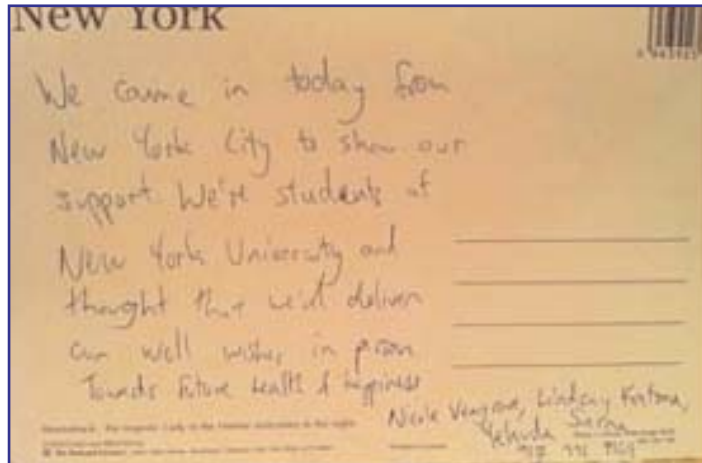 New York
We came in today from
New York City to show our
support. We're students at
New York University and
thought that we'd deliver
our well wishes in person
Towards future health & happiness
Nicole Lindsay
Yehuda Sarna